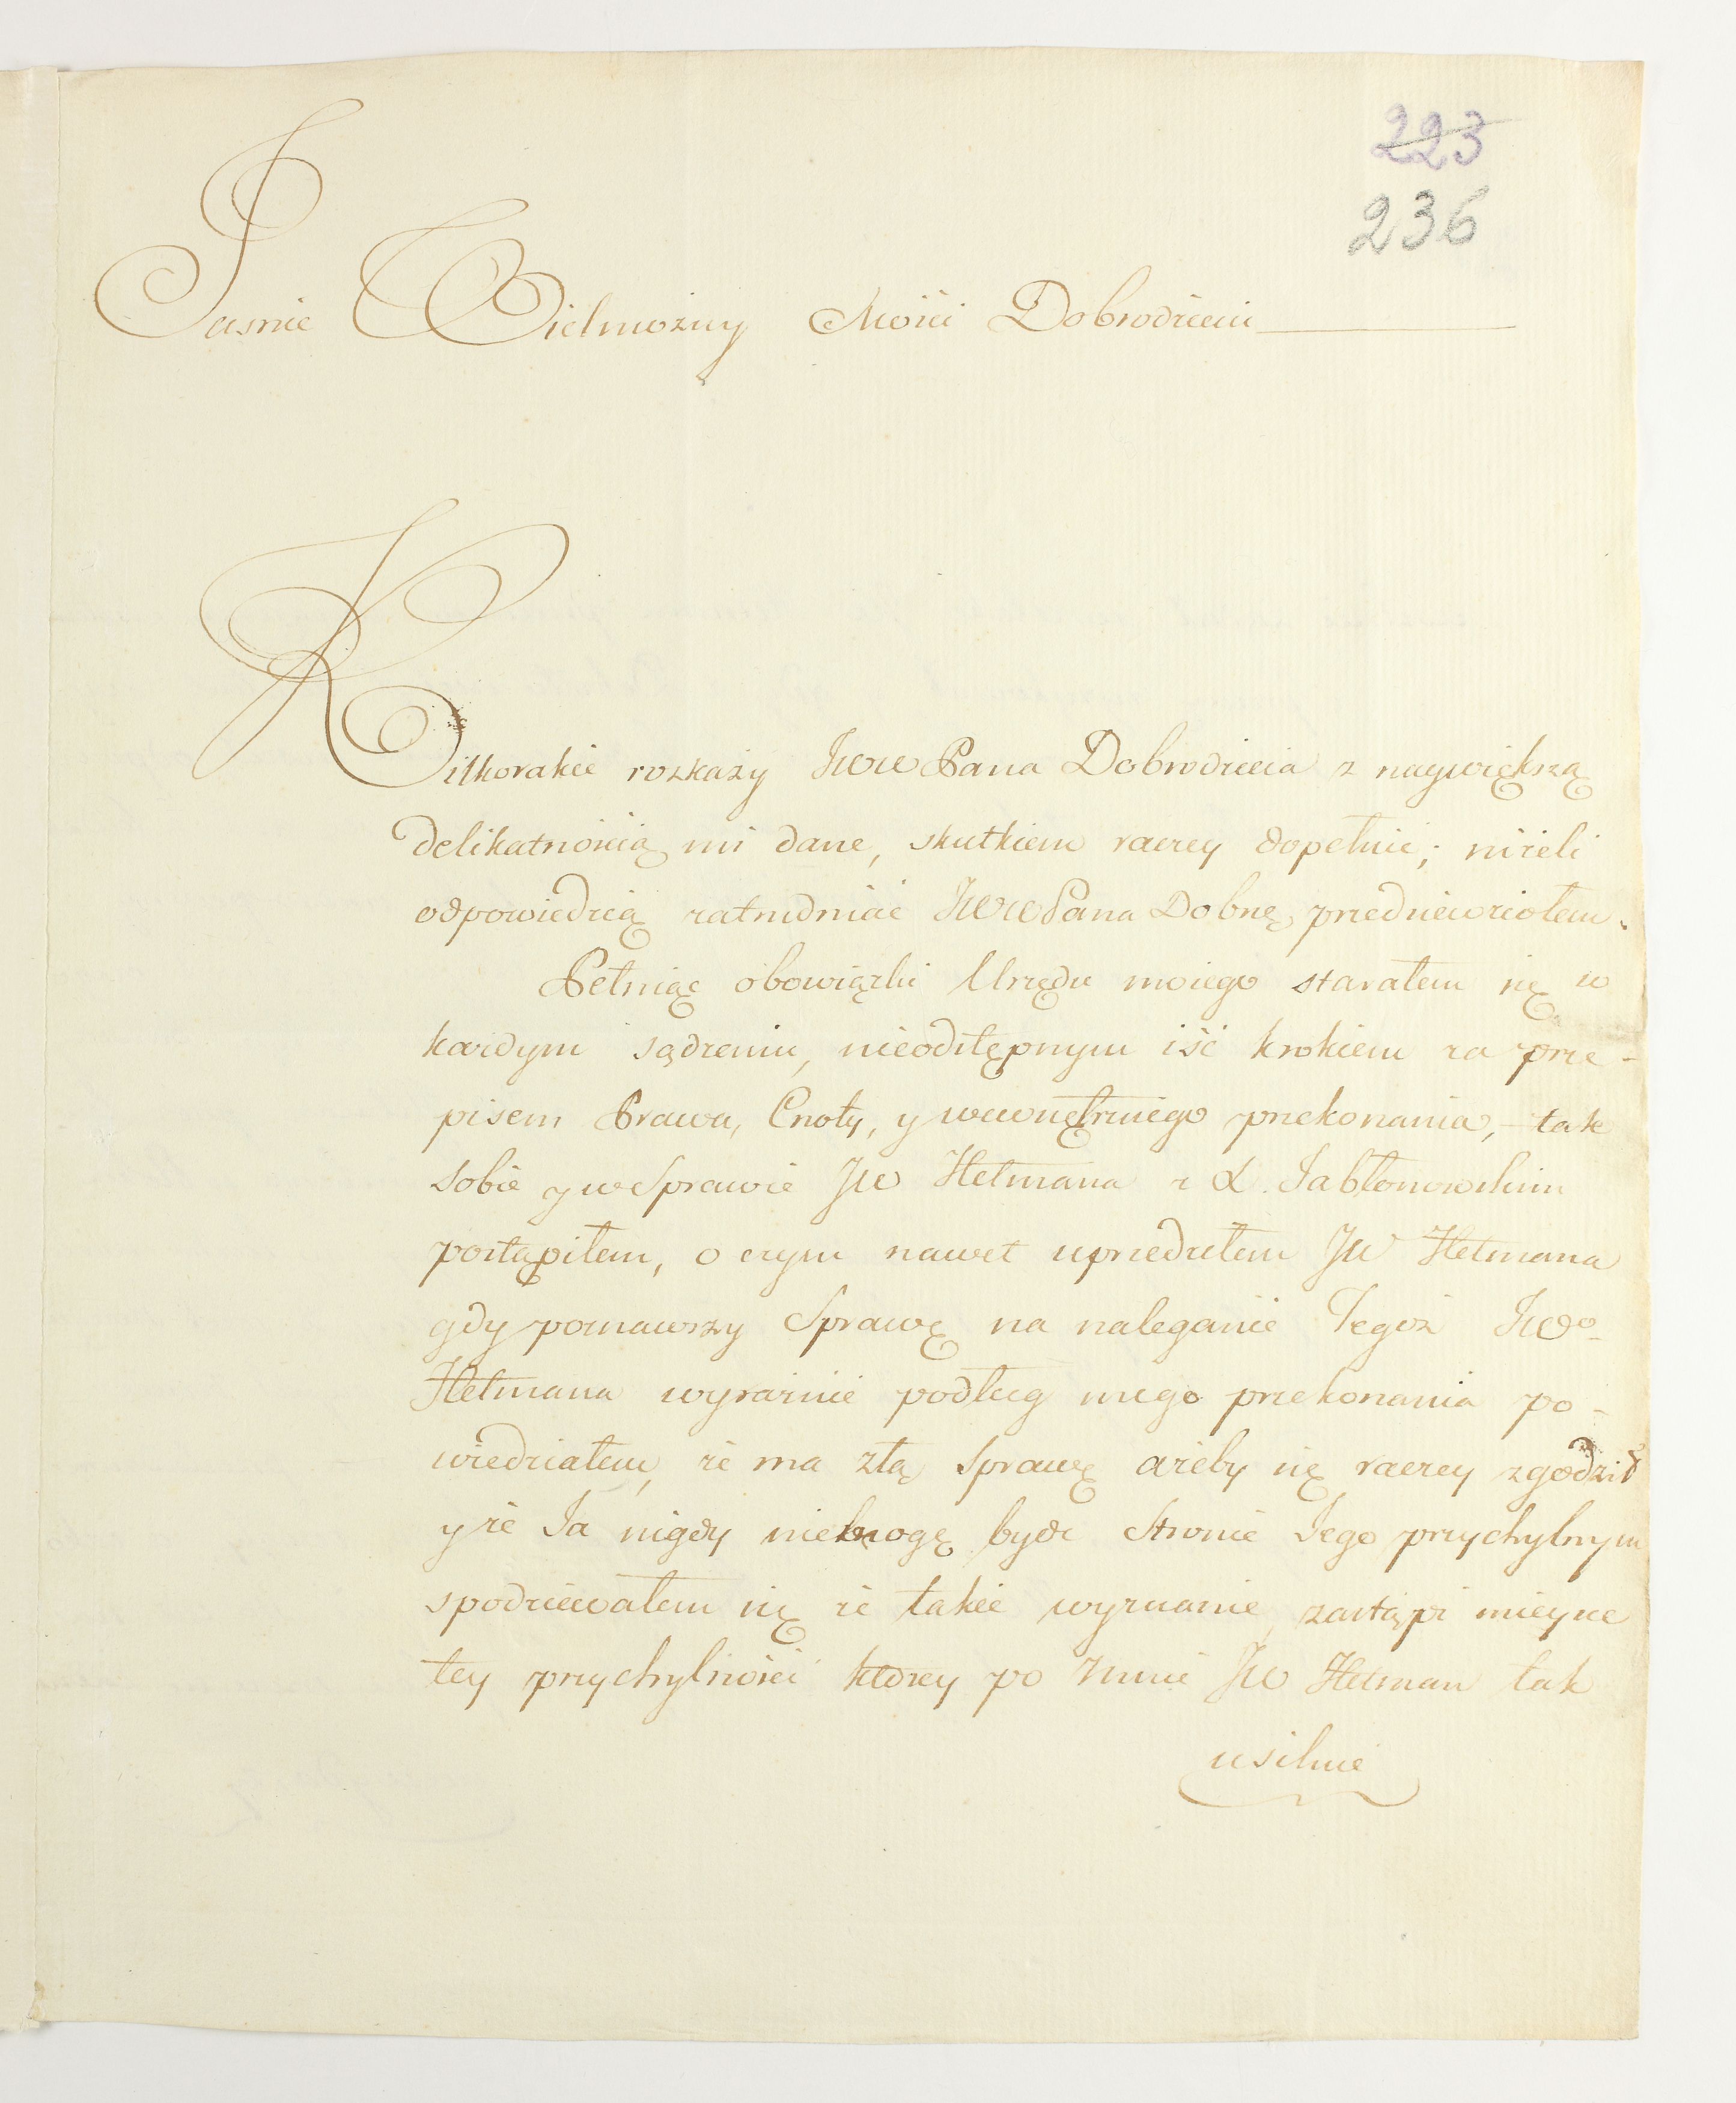 223
236
Jasnie Wielmożny Mości Dobrodzieiu
Kilkorakie rozkazy JWW Pana Dobrodzieia z naywiększą
delikatnością mi dane, skutkiem raczey dopełnić; niżeli
odpowiedzią zatrudniać JWW Pana Dobrię przedsiewziołem.
Pełniąc obowiązki Urzędu moiego starałem się w
każdym sądzeniu, nieodstępnym iść krokiem za prze-
pisem Prawa, Cnoty, y wewnętrznego przekonania, tak
sobie y w Sprawie JW Hetmana z X. Jabłonowskim
postąpiłem, o czym nawet uprzedziłem JW Hetmana
gdy poznawszy Sprawę na naleganie Tegoż JWo
Hetmana wyraźnie podług mego przekonania po-
wiedziałem, że ma złą Sprawę ażeby się raczey zgodził
y że Ja nigdy niemogę bydź Stronie Jego przychylnym
spodziewałem się że takie wyznanie, zastąpi mieysce
tey przychylności ktorey po mnie JW Hetman tak
usilnie